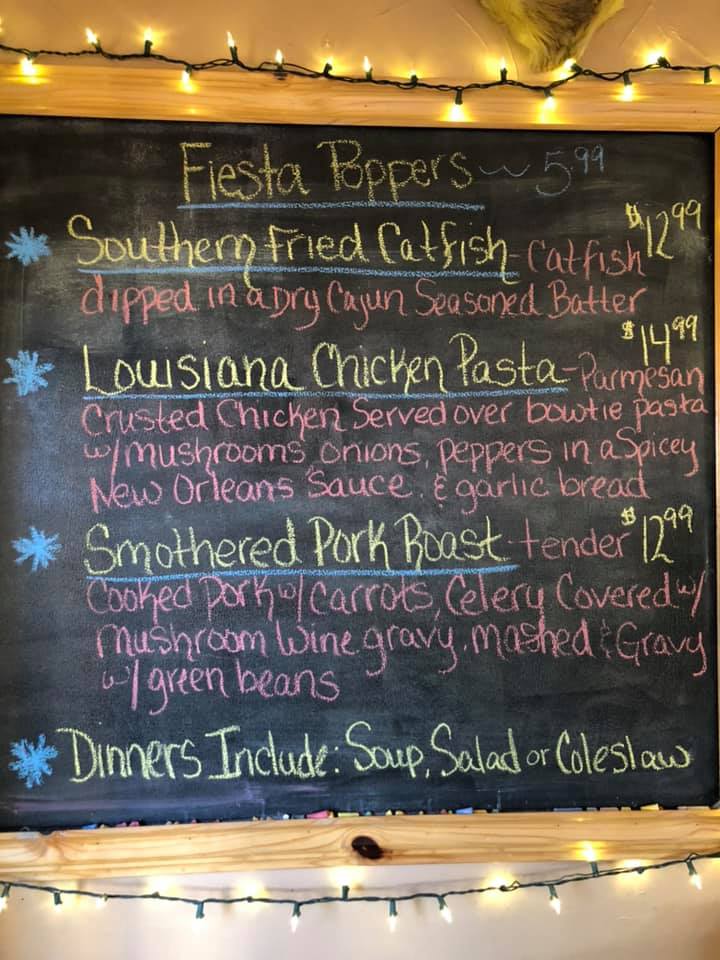 Fiesta Poppers ~ 5.99
Southern Fried Catfish - Catfish $12.99
dipped in a Dry Cajun Seasoned Batter
$14.99
Louisiana Chicken Pasta - Parmesan
Crusted Chicken Served over bowtie pasta
w/ mushrooms, onions, peppers in a Spicey
New Orleans Sauce, & garlic bread
Smothered Pork Roast - tender $12.99
Cooked Pork w/ Carrots, Celery Covered w/
mushroom Wine gravy. mashed & Gravy
w/ green beans
Dinners Include: Soup, Salad or Coleslaw